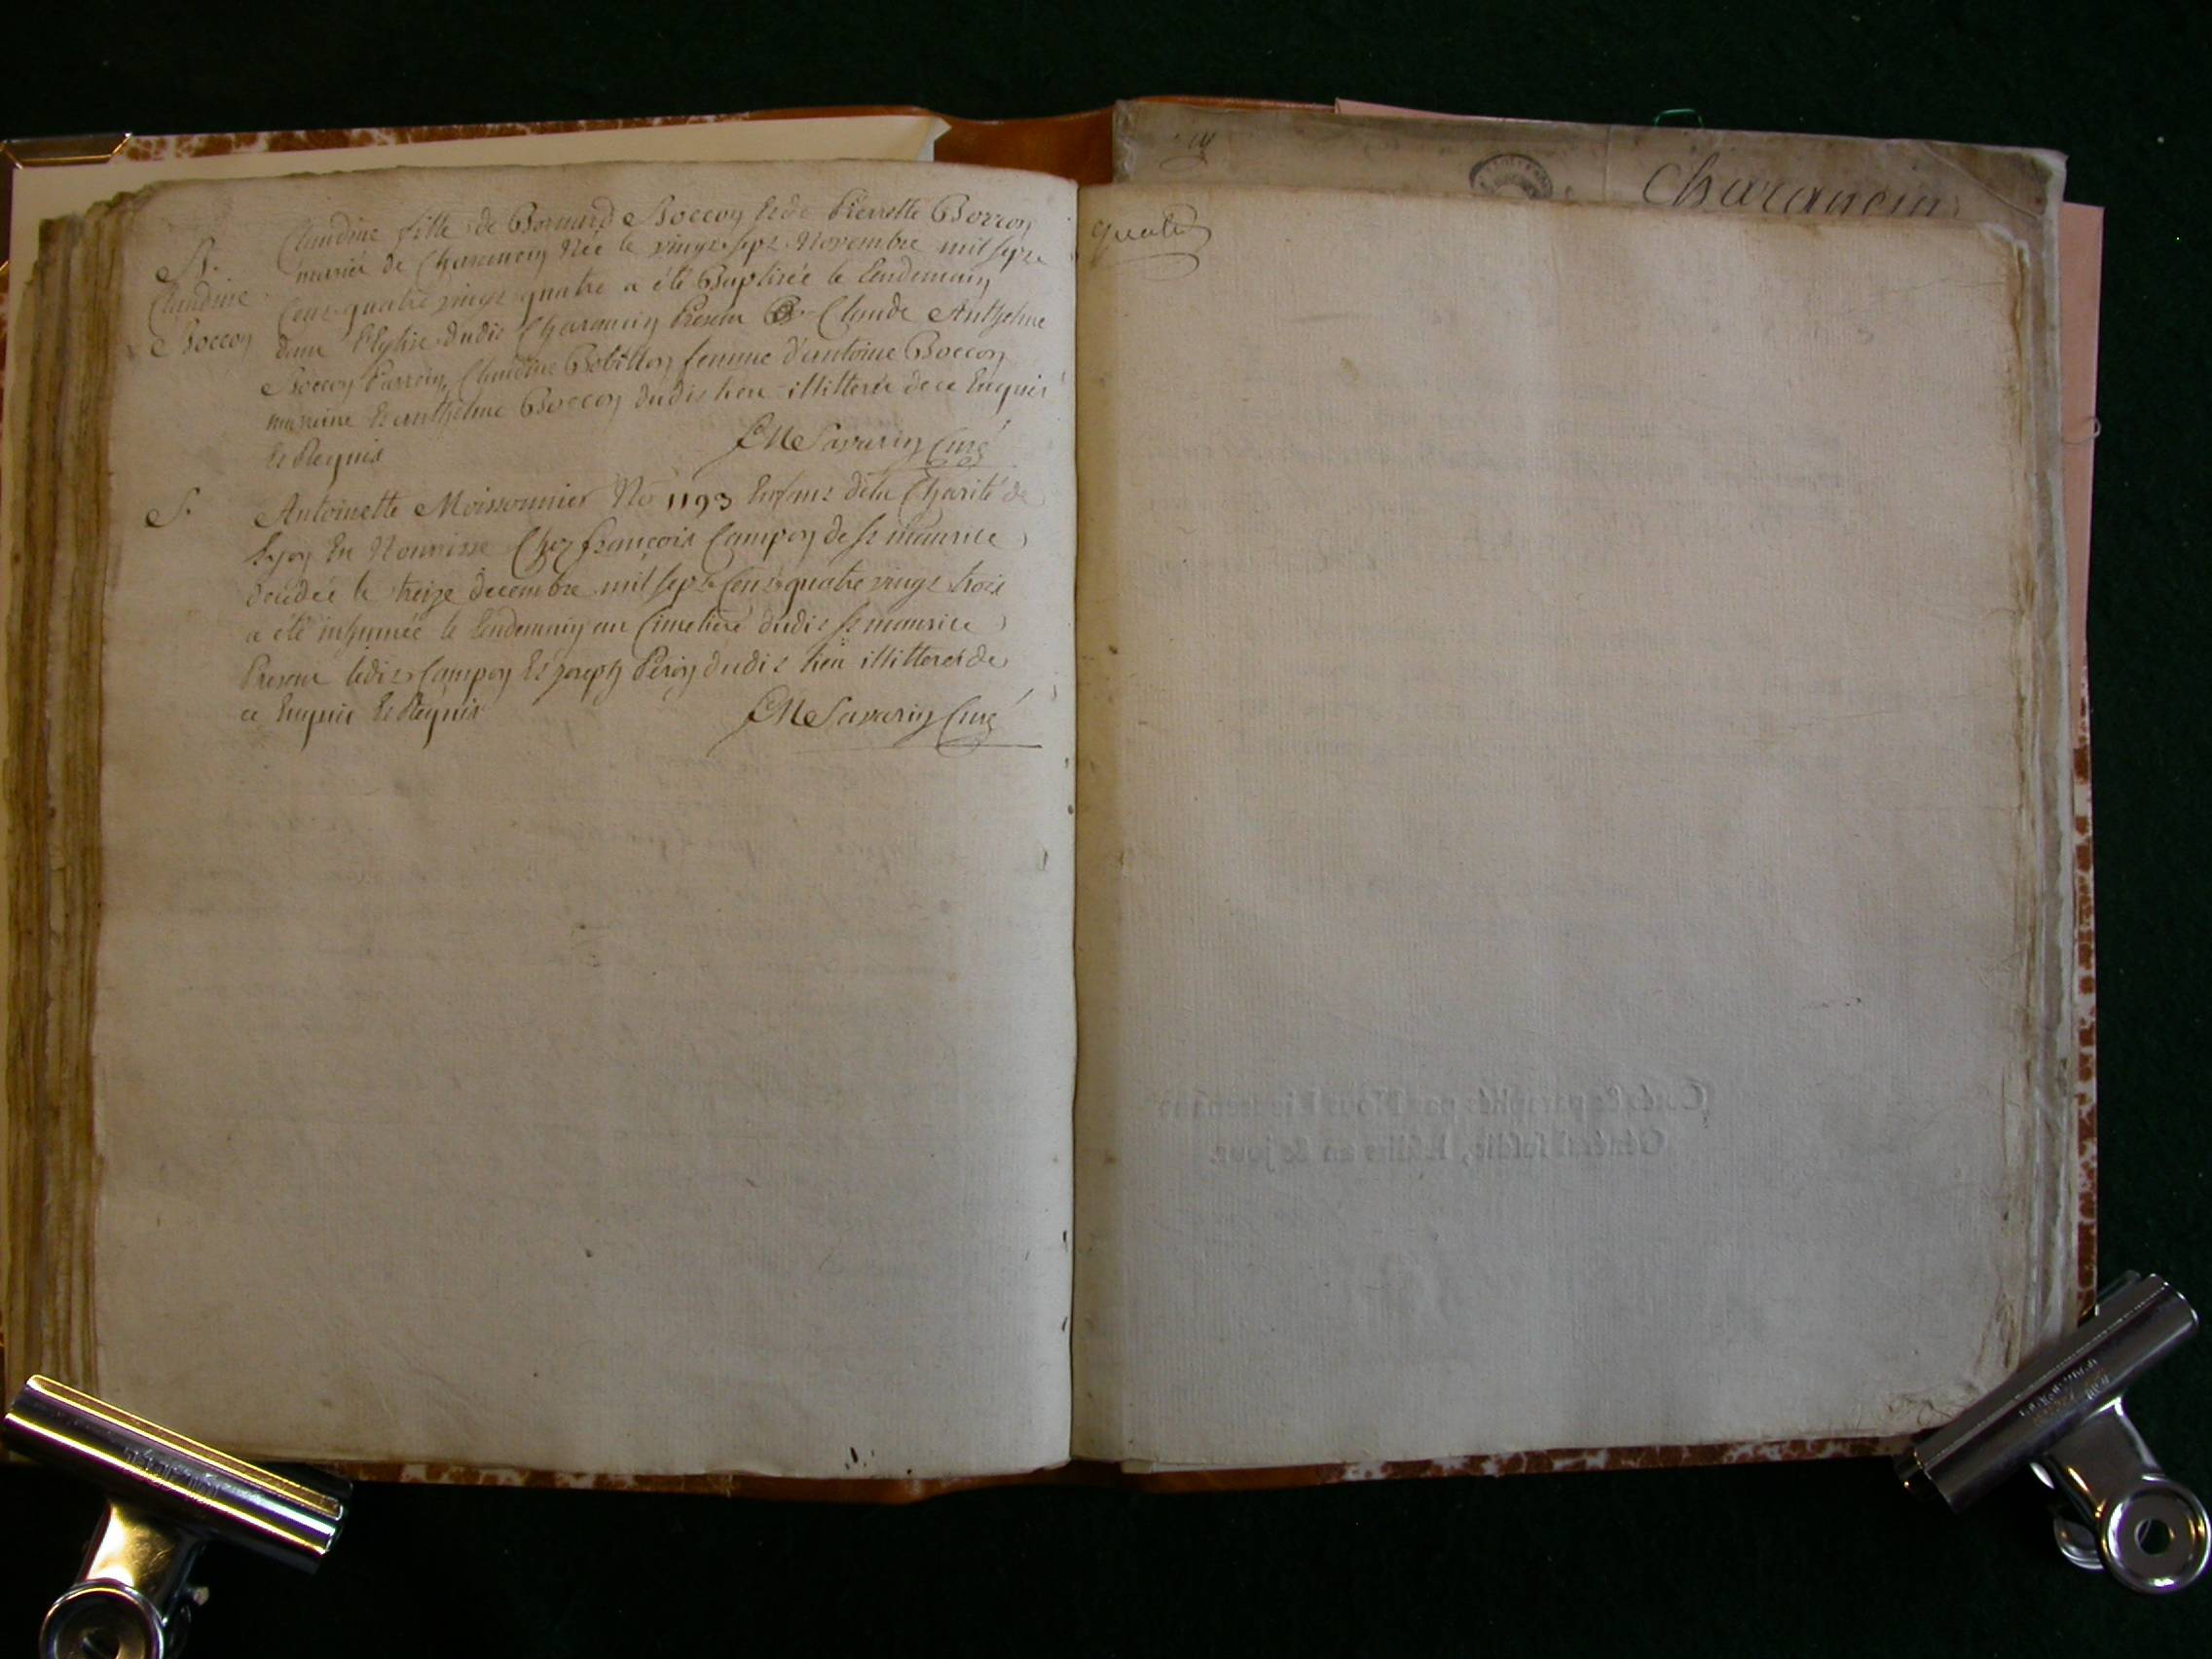 Claudine fille de Bernard Boccon Et de Pierrette Boccon
mariés de Charancin Née le vingt sept Novembre mil sept
Cent quatre vingt quatre a été Baptisée le Lendemain
dans L'Eglise dudit Charancin Present Claude Anthelme
Boccon Parrein, Claudine Bobillon femme d'antoine Boccon
mareine Et anthelme Boccon dudit lieu illitterés de ce Enquis
Et Requis
Savarin Curé
Claudine
Boccon
S.
Antoinette Moissonnier No 1193 Enfant de la Charité de
Lyon En Nourrisse Chez françois Campon de St maurice
décédée le treize decembre mil sept Cent quatre vingt trois
a été inhumée le Lendemain au Cimetiere dudit St maurice
Present ledit Campon Et joseph Péron dudit lieu illitterés de
ce Enquis Et Requis
Savarin Curé
Charancin
quatre
Cotés & paraphés par Nous Lieutenant
Général susdit, lesdits an & jour